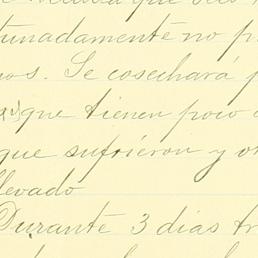 que
tunadamente no p
nos. Se cosechará p
que tienen poco
que sufrieron y o
llevado
Durante 3 dias tr